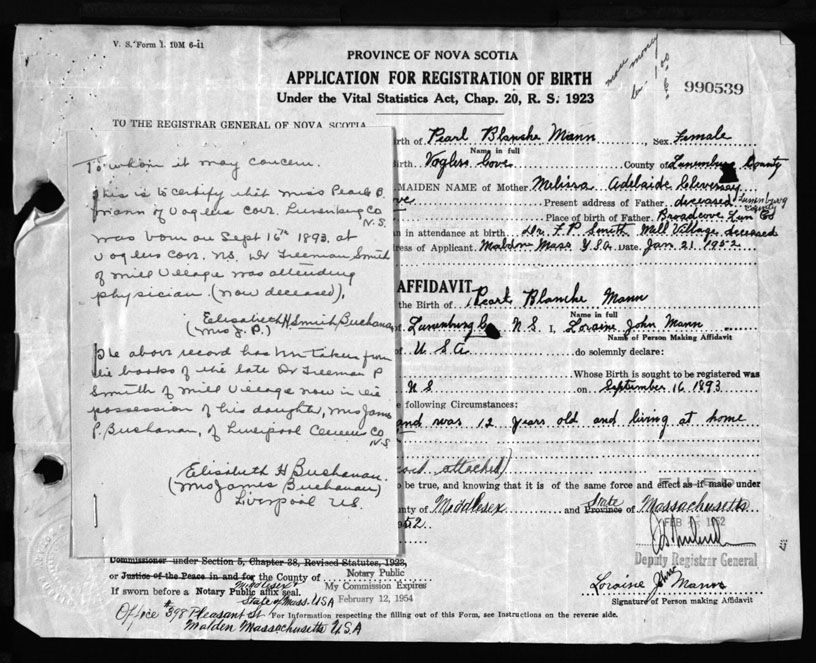 V. S. Form 1. 10M 6-41
PROVINCE OF NOVA SCOTIA
APPLICATION FOR REGISTRATION OF BIRTH
Under the Vital Statistics Act, Chap. 20, R. S. 1923
more money
1 00
990539
TO THE REGISTRAR GENERAL OF NOVA SCOTIA
Birth of Pearl Blanche Mann Sex Female
Name in full
Birth Voglers Cove County of Lunenburg County
MAIDEN NAME of Mother Melissa Adelaide
Present address of Father deceased Lunenburg County
Place of birth of Father Broadcove Lun Co
in attendance at birth Dr. F. P. Smith Mill Village deceased
of Applicant Malden Mass U.S.A. Date Jan 21 1952
To whom it may concern.
This is to certify that Miss Pearl B.
Mann of Voglers Cove. Lunenburg Co
N.S.
was born on Sept 16th 1893. at
Voglers Cove. N.S. Dr Freeman Smith
of Mill Village was attending
physician. (now deceased),
Elisabeth H Smith Buchanan
(Mrs J. P.)
The above record has been taken from
the books of the late Dr Freeman P
Smith of Mill Village now in the
possession of his daughter, Mrs James
P. Buchanan, of Liverpool Queens Co
N.S
Elisabeth H Buchanan.
(Mrs James Buchanan)
Liverpool N.S.
AFFIDAVIT
the Birth of Pearl Blanche Mann
Name in full
Lunenburg Co N.S. I, Loraine John Mann
Name of Person Making Affidavit
of U.S.A do solemnly declare:
Whose Birth is sought to be registered was
N S on September 16 1893
following Circumstances:
and was 12 years old and living at home
attached)
be true, and knowing that it is of the same force and effect as if made under
County of Middlesex and State Province of Massachusetts
1952
FEB 1952
Deputy Registrar General
Commissioner under Section 5, Chapter 38, Revised Statutes, 1923,
or Justice of the Peace in and for the County of Notary Public
Middlesex
If sworn before a Notary Public affix seal. My Commission Expires
State of Mass. USA February 12, 1954
Loraine John Mann
Signature of Person making Affidavit
Office #398 Pleasant St For Information respecting the filling out of this Form, see Instructions on the reverse side.
Malden Massachusetts U.S.A